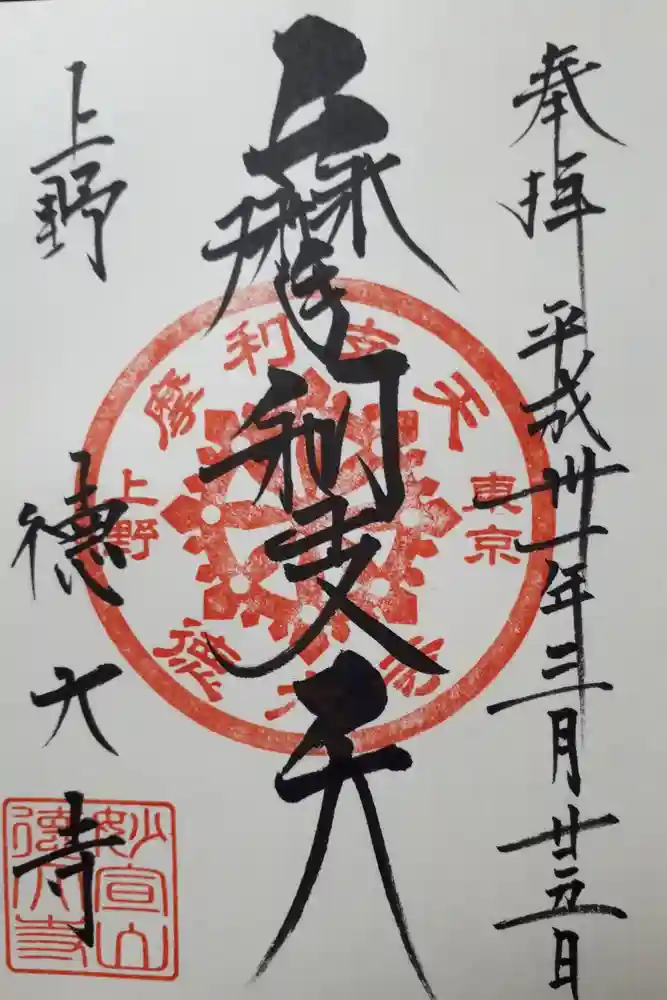 奉拝
平成卅一年三月廿五日
摩利支天
上野
徳大寺
摩利支天
東京
上野
徳大寺
妙宣山
徳大寺